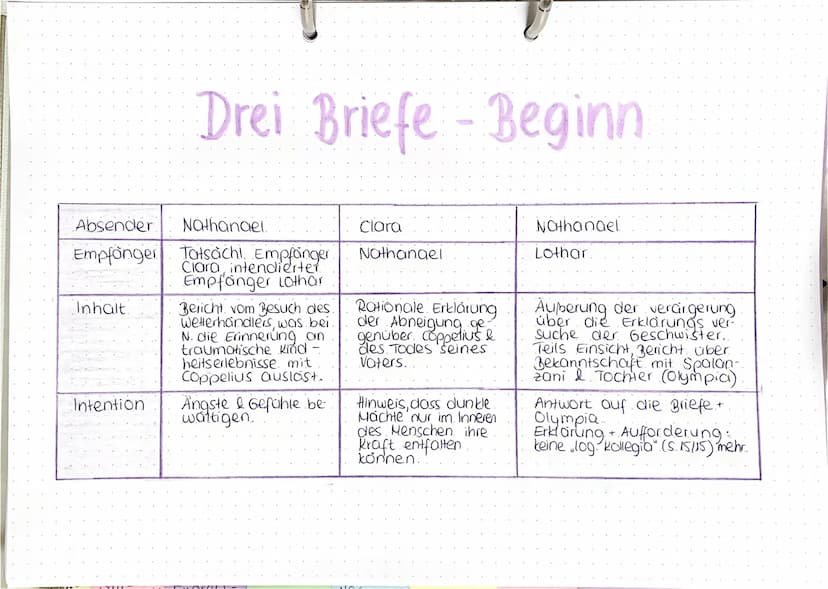 Drei Briefe - Beginn
Absender
Nathanael
Clara
Nathanael
Empfänger
Tatsächl. Empfänger
Clara, intendierter
Empfänger Lothar
Nathanael
Lothar
Inhalt
Bericht vom Besuch des
Wetterhändlers, was bei
N. die Erinnerung an
traumatische Kind-
heitserlebnisse mit
Coppelius auslöst.
Rationale Erklärung
der Abneigung ge-
genüber Coppelius &
des Todes seines
Vaters.
Äußerung der verärgerung
über die Erklärungs ver-
suche der Geschwister.
Teils Einsicht, Bericht über
Bekanntschaft mit Spalan-
zani & Tochter (Olympia)
Intention
Ängste & Gefühle be-
wältigen.
Hinweis, dass dunkle
Mächte nur im Inneren
des Menschen ihre
Kraft entfalten
können.
Antwort auf die Briefe +
Olympia.
Erklärung + Aufforderung:
keine „log. Kollegia" (S.15/15) mehr.